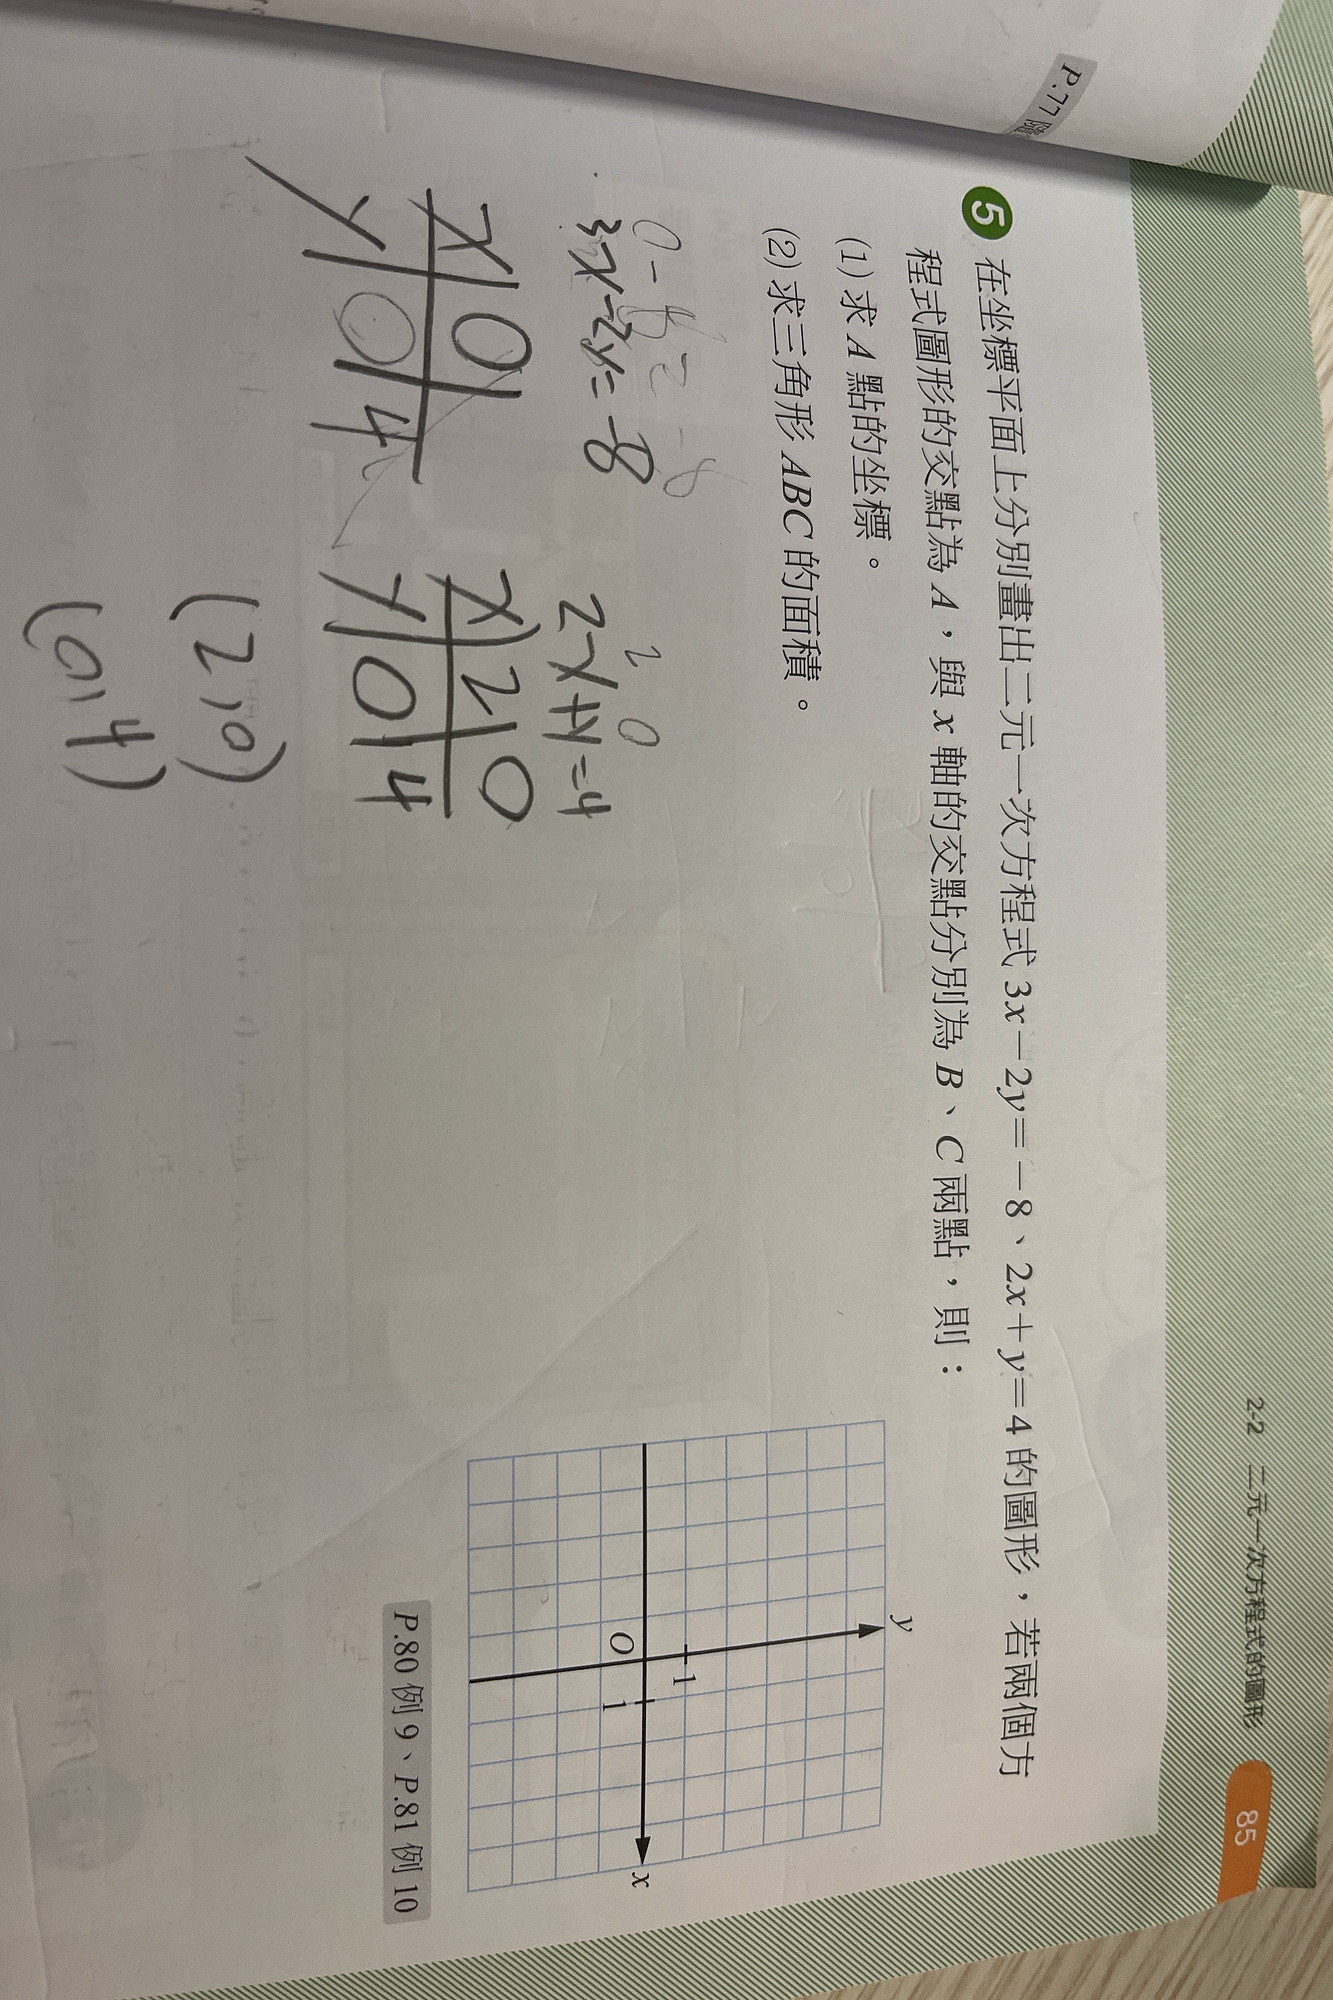 P.77 隨
2-2 二元一次方程式的圖形 85
5 在坐標平面上分別畫出二元一次方程式 3x－2y＝－8、2x＋y＝4 的圖形，若兩個方
程式圖形的交點為 A，與 x 軸的交點分別為 B、C 兩點，則：
(1) 求 A 點的坐標。
(2) 求三角形 ABC 的面積。
y
1
O 1 x
P.80 例 9、P.81 例 10
2 0
3x-2y=-8 2x+y=4
x 0
y 0 4
x 2 0
y 0 4
(2,0)
(0,4)